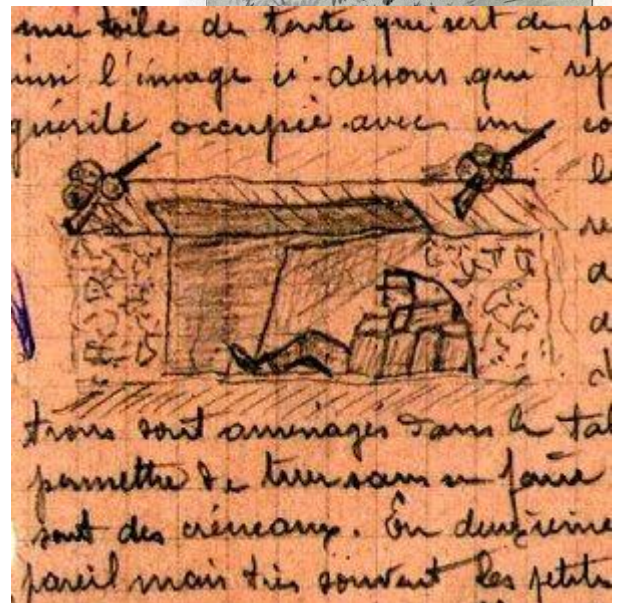 une toile de tente qui sert de po
insi l'image ci-dessous qui rep
guérite occupée avec un co
le
re
a
a
trous sont aménagés dans le tal
permettre de tirer sans en faire
sont des créneaux. En deuxième
pareil mais très souvent les petits